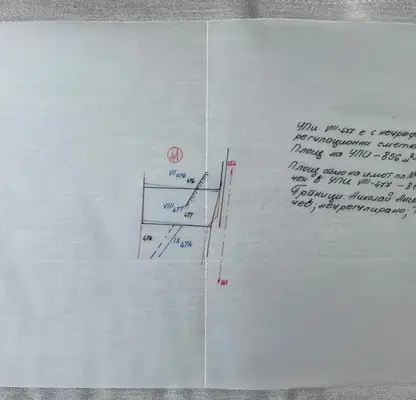 УПИ VIII-477 е с неуред
регулационни сметк
Площ на УПИ - 856
Площ само на имот пл. №
чен в УПИ VIII-477 -
Граници: Николай
чев; нерегулирано;
41
VII 476
476
VIII 477
477
474
IX 474